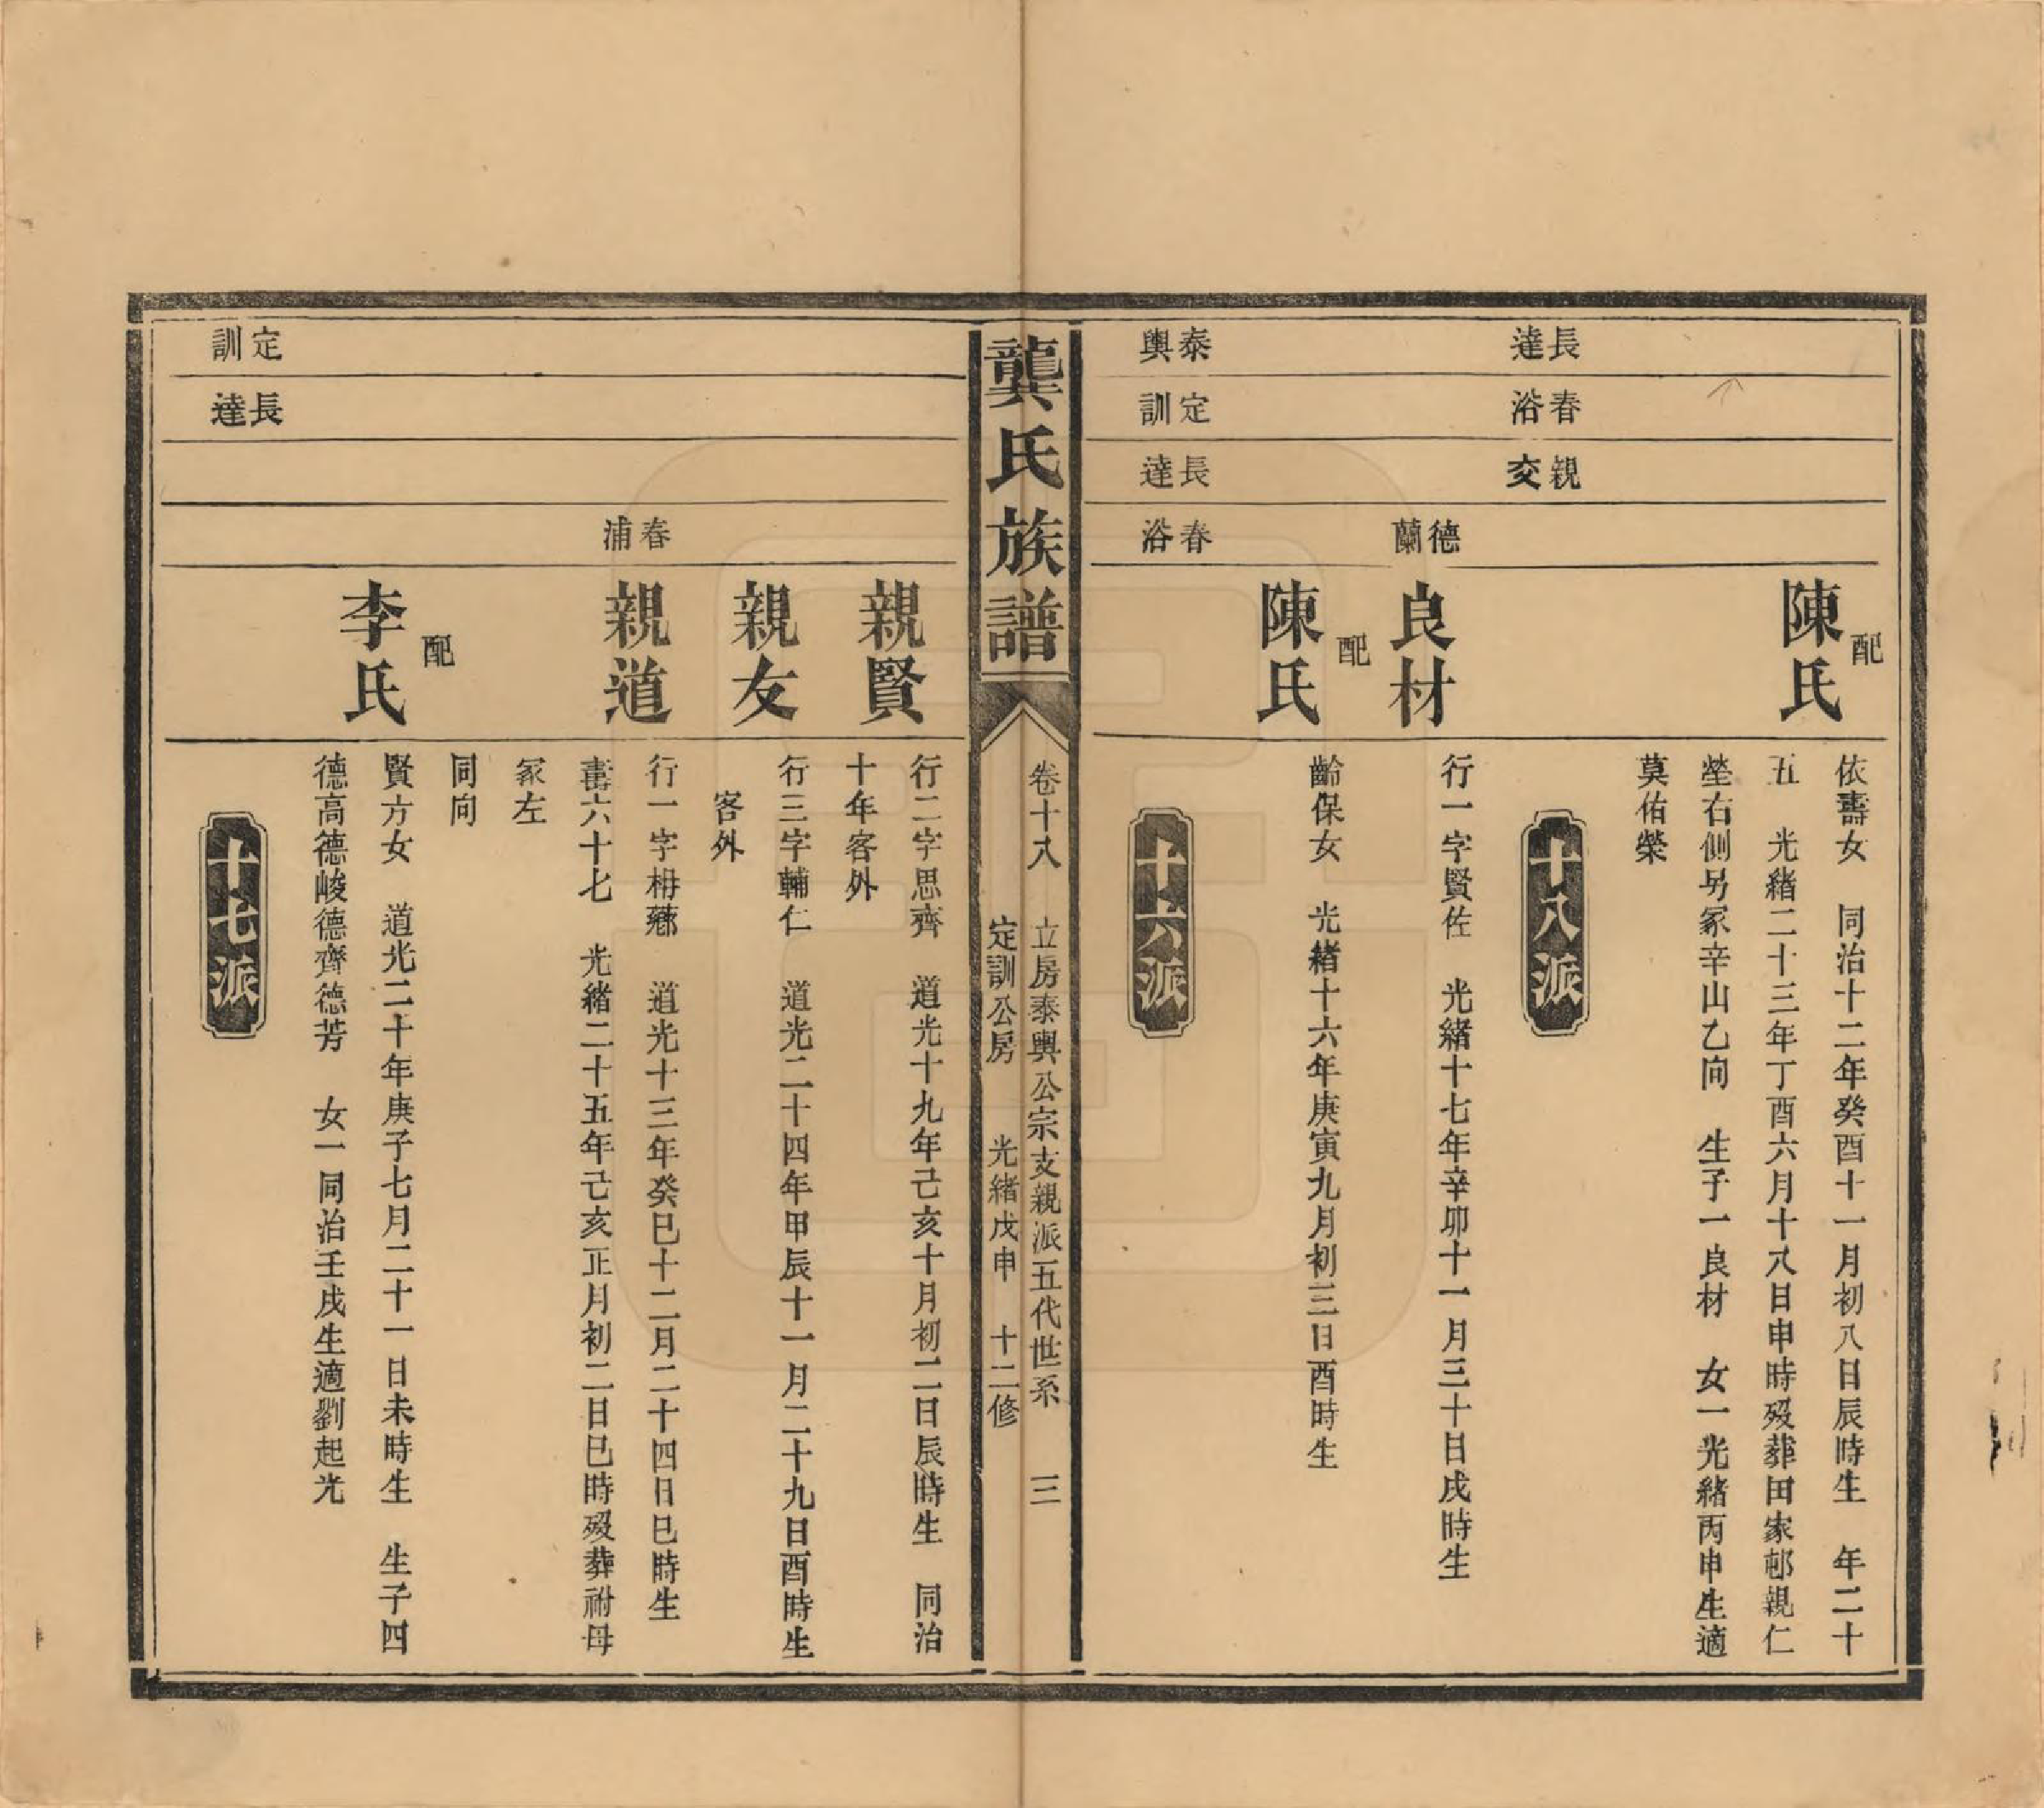 配
陳氏
依壽女　同治十二年癸酉十一月初八日辰時生　年二十
五　光緒二十三年丁酉六月十八日申時歿葬田家邨親仁
塋右側另冢辛山乙向　生子一良材　女一光緒丙申生適
莫佑榮
長達
春浴
親交
十八派
德蘭
良材
行一字賢佐　光緒十七年辛卯十一月三十日戌時生
配
陳氏
齡保女　光緒十六年庚寅九月初三日酉時生
泰輿
定訓
長達
春浴
十六派
龔氏族譜
卷十八　立房泰輿公宗支親派五代世系　三
定訓公房　光緒戊申　十二修
親賢
行二字思齊　道光十九年己亥十月初二日辰時生　同治
十年客外
親友
行三字輔仁　道光二十四年甲辰十一月二十九日酉時生
客外
春浦
親道
行一字栴薌　道光十三年癸巳十二月二十四日巳時生
壽六十七　光緒二十五年己亥正月初二日巳時歿葬祔母
冢左
同向
配
李氏
賢方女　道光二十年庚子七月二十一日未時生　生子四
德高德峻德齊德芳　女一同治壬戌生適劉起光
定訓
長達
十七派